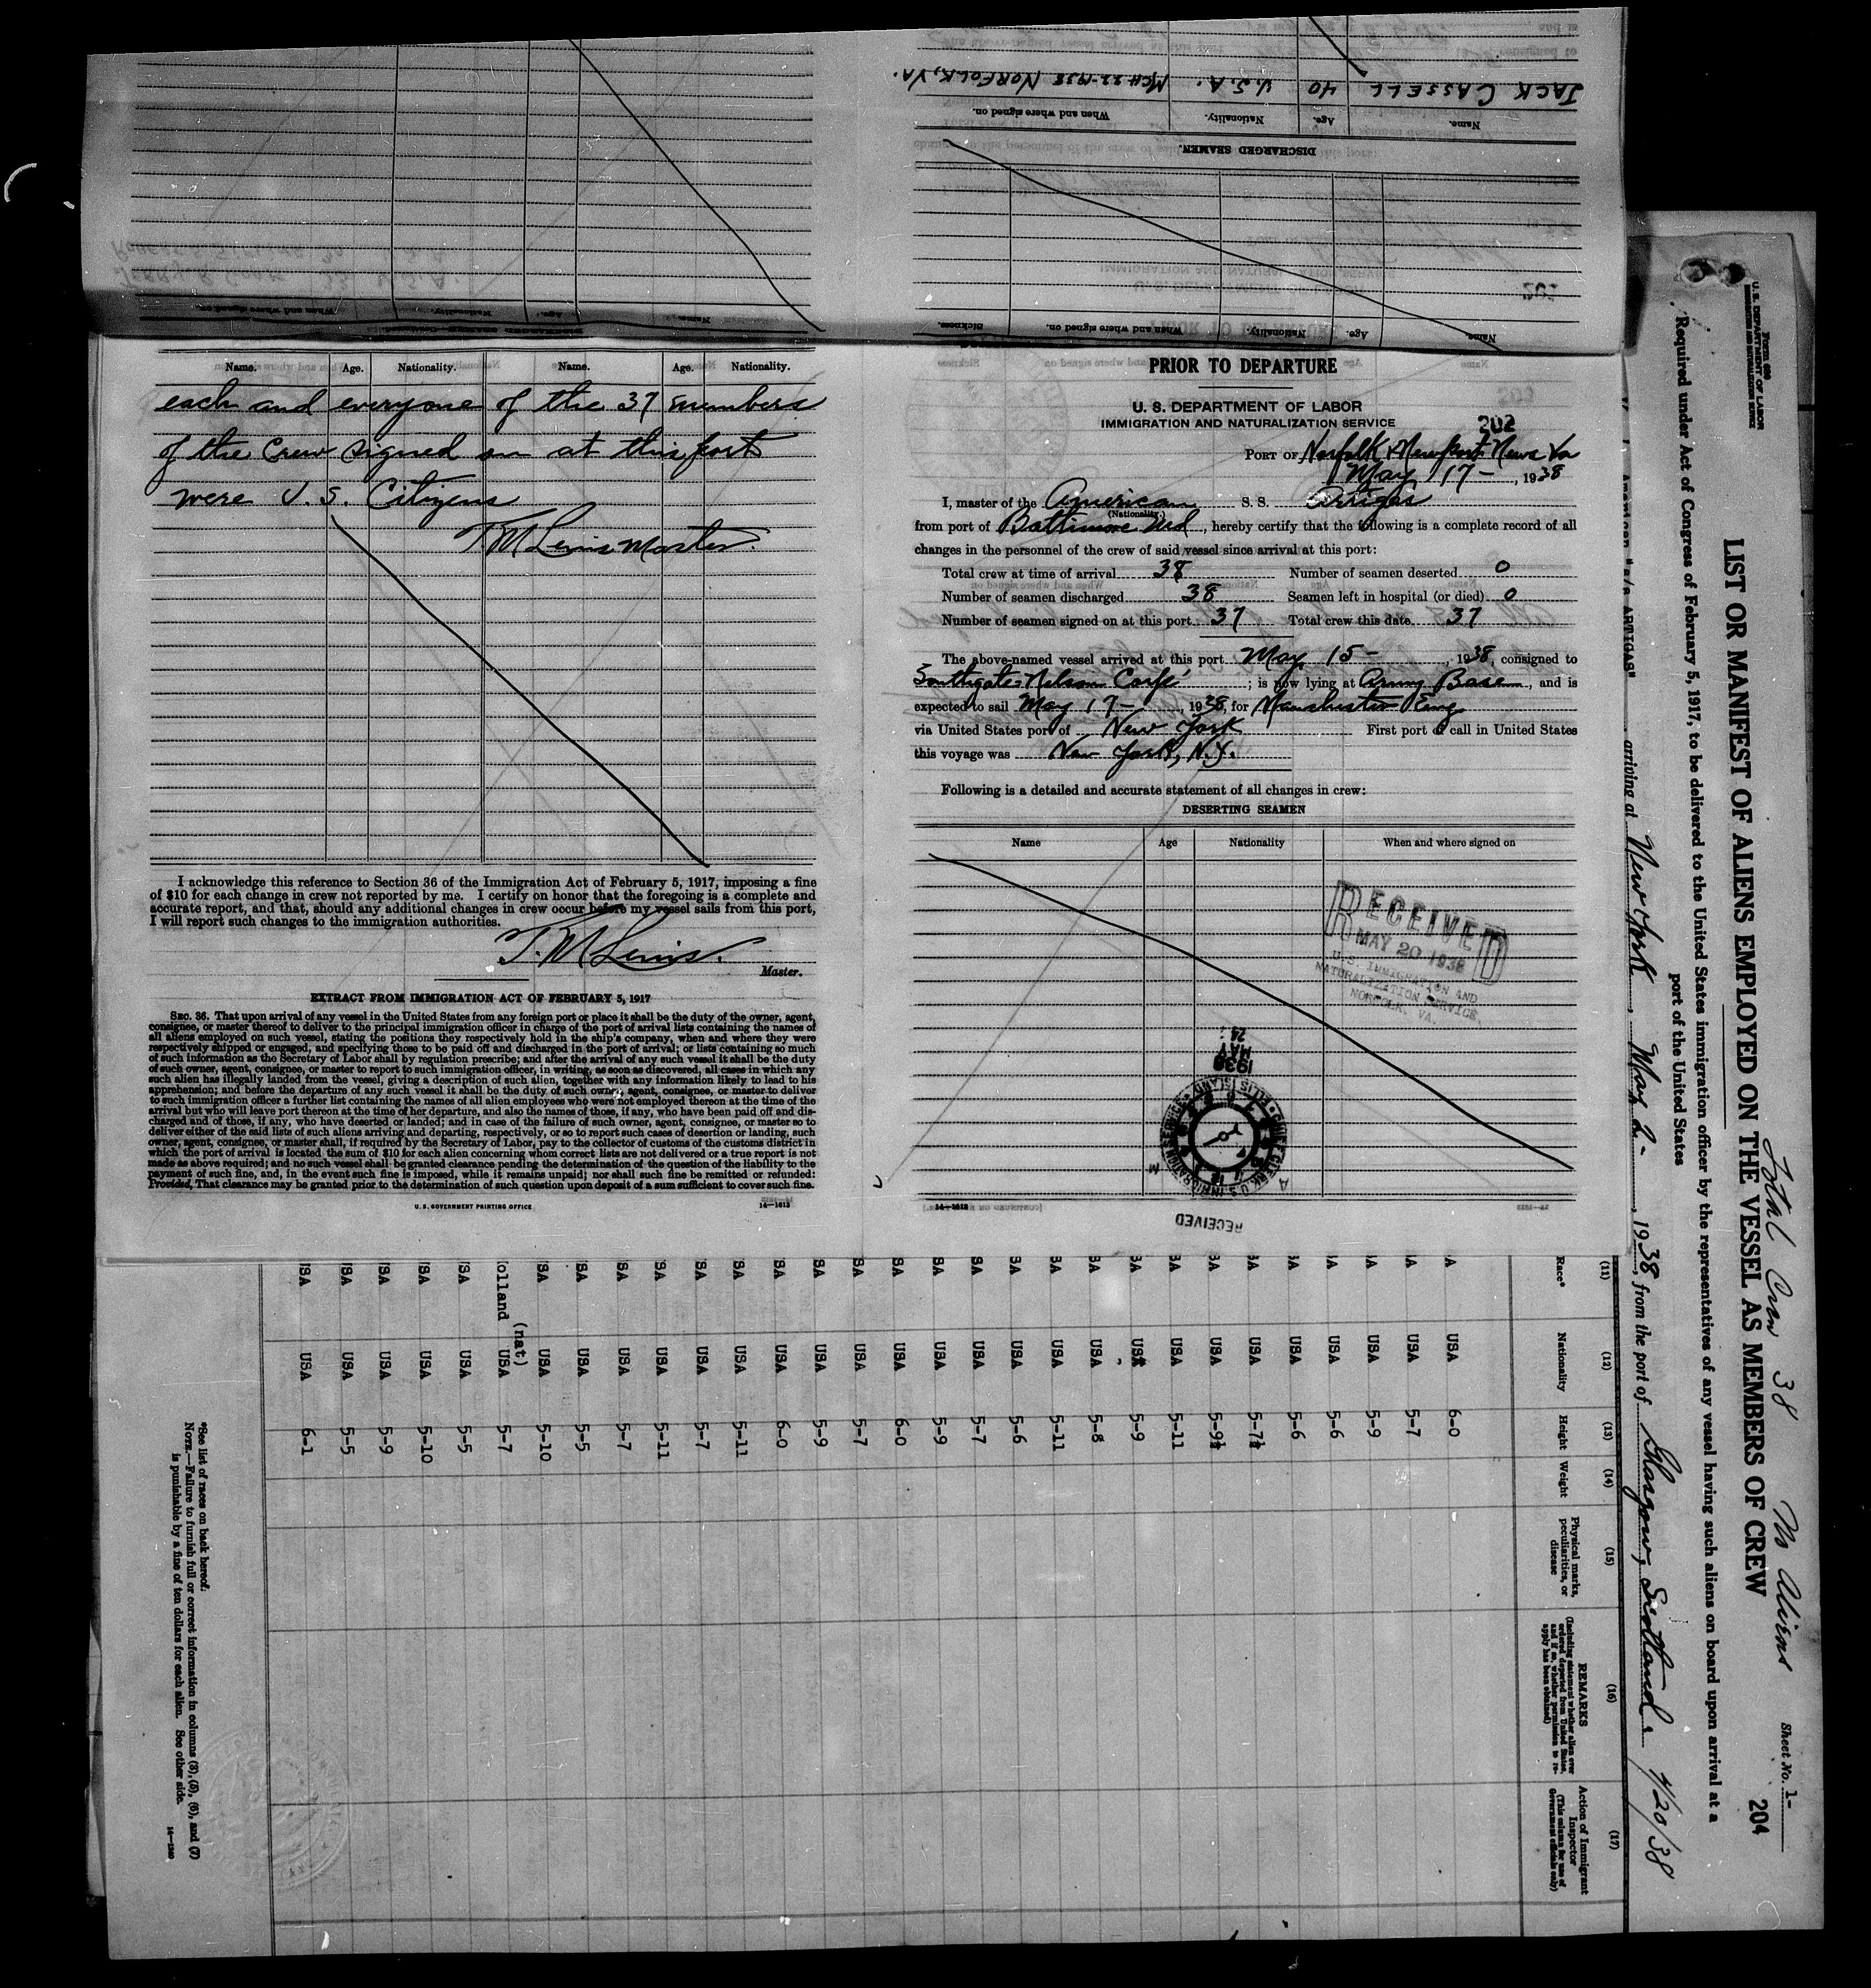 JACK CASSELL 40 U.S.A. MCH-22-1938 NORFOLK, VA.
Name. Age. Nationality. When and where signed on.
DISCHARGED SEAMEN.
Name. Age. Nationality. When and where signed on. Sickness.
Name. Age. Nationality. When and where signed on.
Name. Age. Nationality. Name. Age. Nationality.
each and everyone of the 37 members
of the Crew signed on at this port
were U.S. Citizens
T.M. Lewis Master.
I acknowledge this reference to Section 36 of the Immigration Act of February 5, 1917, imposing a fine
of $10 for each change in crew not reported by me. I certify on honor that the foregoing is a complete and
accurate report, and that, should any additional changes in crew occur before my vessel sails from this port,
I will report such changes to the immigration authorities.
T. M. Lewis.
Master.
EXTRACT FROM IMMIGRATION ACT OF FEBRUARY 5, 1917
SEC. 36. That upon arrival of any vessel in the United States from any foreign port or place it shall be the duty of the owner, agent,
consignee, or master thereof to deliver to the principal immigration officer in charge of the port of arrival lists containing the names of
all aliens employed on such vessel, stating the positions they respectively hold in the ship's company, when and where they were
respectively shipped or engaged, and specifying those to be paid off and discharged in the port of arrival; or lists containing so much
of such information as the Secretary of Labor shall by regulation prescribe; and after the arrival of any such vessel it shall be the duty
of such owner, agent, consignee, or master to report to such immigration officer, in writing, as soon as discovered, all cases in which any
such alien has illegally landed from the vessel, giving a description of such alien, together with any information likely to lead to his
apprehension; and before the departure of any such vessel it shall be the duty of such owner, agent, consignee, or master to deliver
to such immigration officer a further list containing the names of all alien employees who were not employed thereon at the time of the
arrival but who will leave port thereon at the time of her departure, and also the names of those, if any, who have been paid off and dis-
charged and of those, if any, who have deserted or landed; and in case of the failure of such owner, agent, consignee, or master so to
deliver either of the said lists of such aliens arriving and departing, respectively, or so to report such cases of desertion or landing, such
owner, agent, consignee, or master shall, if required by the Secretary of Labor, pay to the collector of customs of the customs district in
which the port of arrival is located the sum of $10 for each alien concerning whom correct lists are not delivered or a true report is not
made as above required; and no such vessel shall be granted clearance pending the determination of the question of the liability to the
payment of such fine, and, in the event such fine is imposed, while it remains unpaid; nor shall such fine be remitted or refunded:
Provided, That clearance may be granted prior to the determination of such question upon deposit of a sum sufficient to cover such fine.
U. S. GOVERNMENT PRINTING OFFICE 14—1613
PRIOR TO DEPARTURE
U. S. DEPARTMENT OF LABOR
IMMIGRATION AND NATURALIZATION SERVICE
202
PORT OF Norfolk & Newport News Va
May 17 - , 1938
I, master of the American S. S. Artigas
(Nationality.)
from port of Baltimore Md , hereby certify that the following is a complete record of all
changes in the personnel of the crew of said vessel since arrival at this port:
Total crew at time of arrival 38 Number of seamen deserted 0
Number of seamen discharged 38 Seamen left in hospital (or died) 0
Number of seamen signed on at this port 37 Total crew this date 37
The above-named vessel arrived at this port May 15 - , 1938, consigned to
Southgate-Nelson Corp ; is now lying at Army Base , and is
expected to sail May 17 - , 1938, for Manchester Eng
via United States port of New York First port of call in United States
this voyage was New York, N.Y.
Following is a detailed and accurate statement of all changes in crew:
DESERTING SEAMEN
Name Age Nationality When and where signed on
RECEIVED
MAY 20 1938
U.S. IMMIGRATION AND
NATURALIZATION SERVICE,
NORFOLK, VA.
1938
MAY
24
CHIEF CLERK U.S. IMMIGRATION SERVICE ELLIS ISLAND
RECEIVED
Form 680
U. S. DEPARTMENT OF LABOR
Total Crew 38 No Aliens Sheet No. 1-
204
LIST OR MANIFEST OF ALIENS EMPLOYED ON THE VESSEL AS MEMBERS OF CREW
Required under Act of Congress of February 5, 1917, to be delivered to the United States immigration officer by the representatives of any vessel having such aliens on board upon arrival at a
port of the United States
"ARTIGAS" , arriving at New York , May 2- , 1938, from the port of Glasgow, Scotland. 4/20/38
(11) (12) (13) (14) (15) (16) (17)
Race* Nationality Height Weight Physical marks, peculiarities, or disease REMARKS (Including statement whether alien ever ordered deported from United States, and if so, whether permission to re-apply has been obtained) Action of Immigrant Inspector (This column for use of Government officials only)
A USA 6-0
SA USA 5-7
SA USA 5-9
SA USA 5-6
SA USA 5-6
SA USA 5-7½
SA USA 5-9½
SA USA 5-11
SA USA 5-9
SA USA 5-8
SA USA 5-11
SA USA 5-6
SA USA 5-7
SA USA 5-9
SA USA 6-0
SA USA 5-7
SA USA 5-9
SA USA 6-0
SA USA 5-11
SA USA 5-7
SA USA 5-11
SA USA 5-7
SA USA 5-5
SA USA 5-10
olland (nat) USA 5-7
SA USA 5-5
SA USA 5-10
SA USA 5-9
SA USA 5-5
USA USA 6-1
*See list of races on back hereof.
NOTE.—Failure to furnish full or correct information in columns (3), (5), (6), and (7)
is punishable by a fine of ten dollars for each alien. See other side.
14—1240